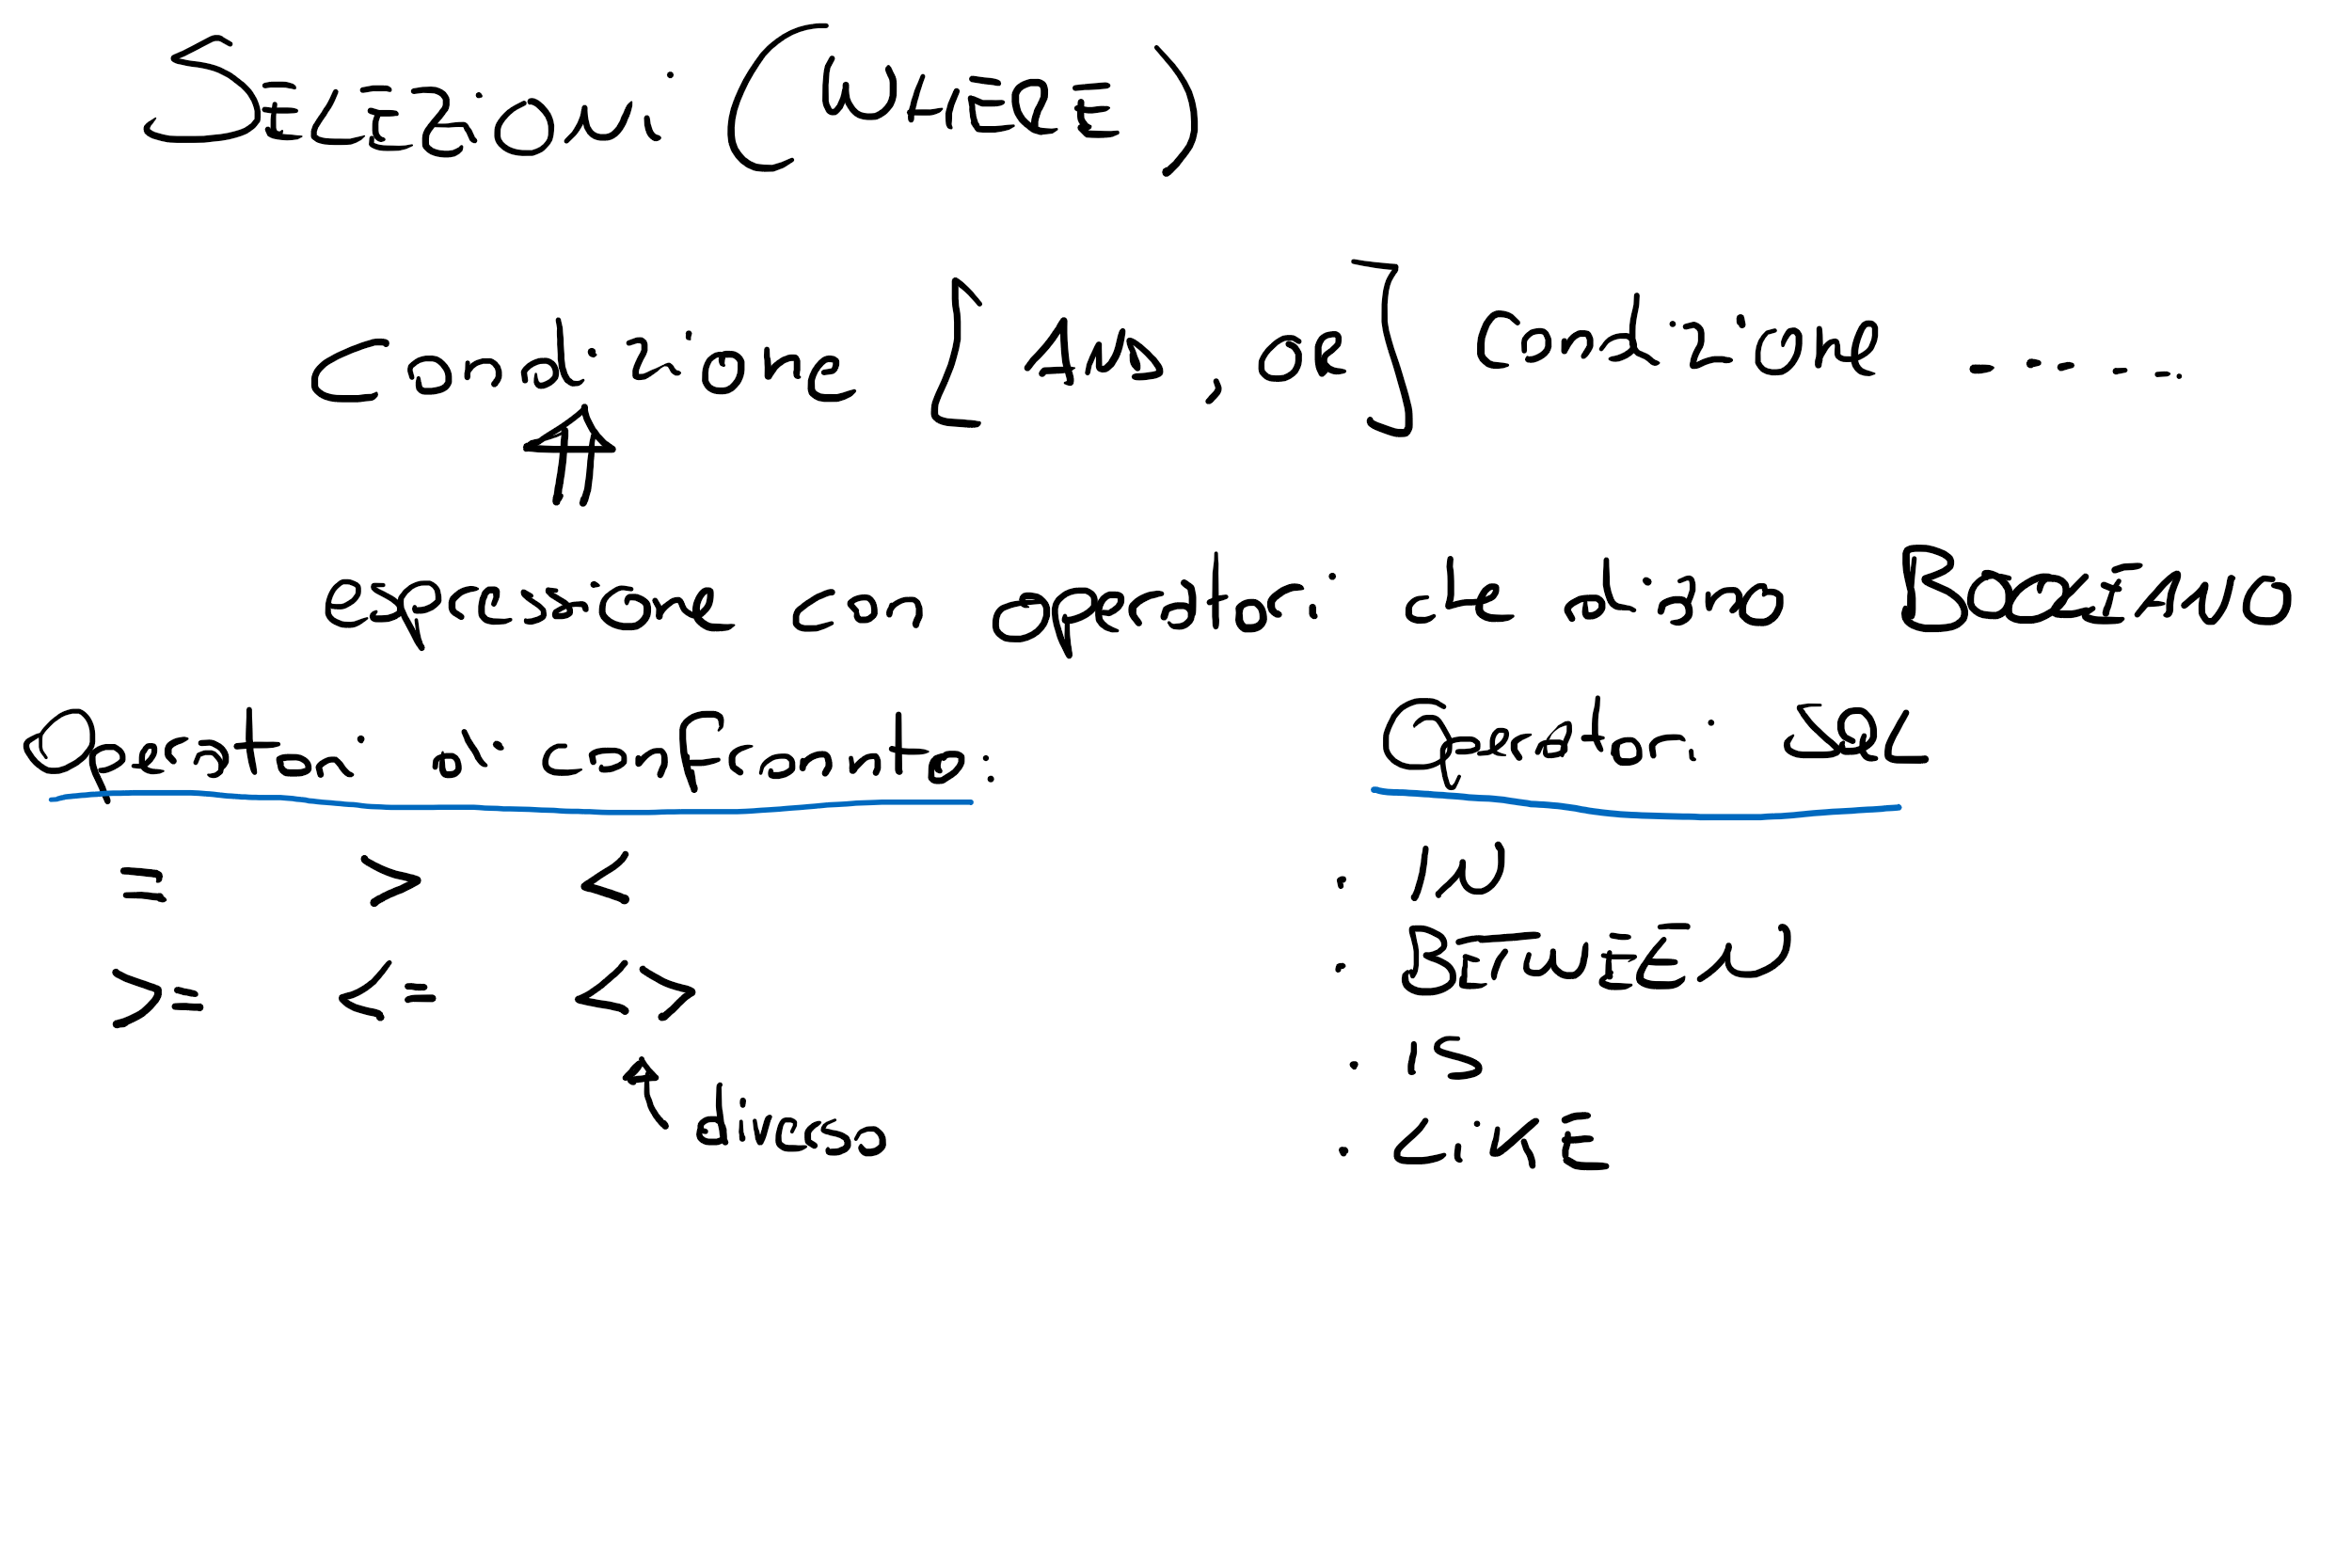 SELEZIONI (WHERE)
Condizione [AND, OR] condizione ......
espressione con operatori che diano BOOLEANO
Operatori di confronto:
= > <
>= <= <>
diverso
Operatori SQL
· IN
· BETWEEN
· IS
· LIKE